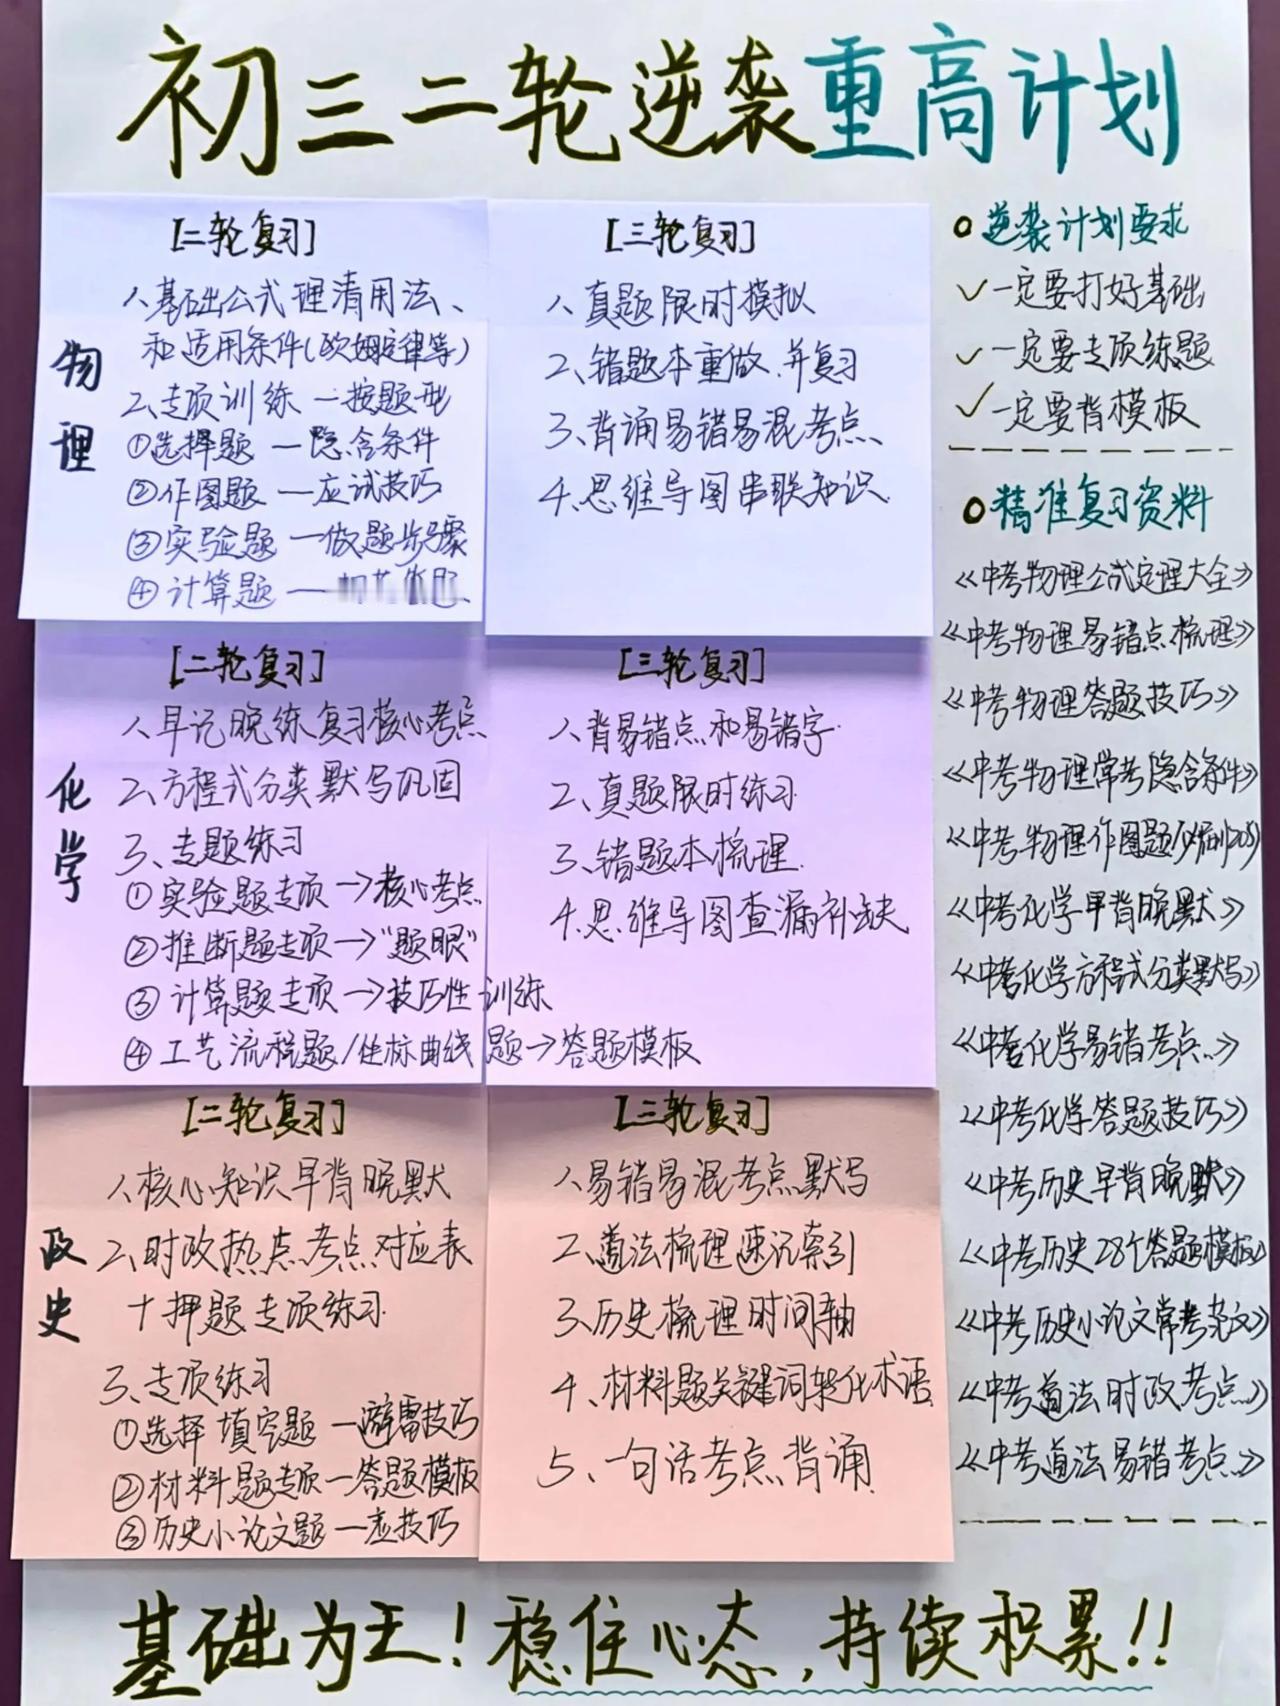 初三二轮逆袭重高计划
物理
[二轮复习]
1、基础公式理清用法、
和适用条件(欧姆定律等)
2、专项训练 一按题型
①选择题 — 隐含条件
②作图题 — 应试技巧
③实验题 — 做题步骤
④计算题 —
[三轮复习]
1、真题限时模拟
2、错题本重做、并复习
3、背诵易错易混考点、
4、思维导图串联知识.
化学
[二轮复习]
1、早记晚练复习核心考点
2、方程式分类默写巩固
3、专题练习
①实验题专项→核心考点
②推断题专项→“题眼”
③计算题专项→技巧性训练
④工艺流程题/坐标曲线题→答题模板
[三轮复习]
1、背易错点和易错字.
2、真题限时练习.
3、错题本梳理.
4、思维导图查漏补缺
政史
[二轮复习]
1、核心知识早背晚默
2、时政热点考点对应表
+押题专项练习.
3、专项练习
①选择 填空题 — 避雷技巧
②材料题专项 — 答题模板
③历史小论文题 — 应技巧
[三轮复习]
1、易错易混考点默写
2、道法梳理速记索引
3、历史梳理时间轴
4、材料题关键词转化术语
5、一句话考点背诵.
逆袭计划要求
✓一定要打好基础
✓一定要专项练题
✓一定要背模板
精准复习资料
《中考物理公式定理大全》
《中考物理易错点梳理》
《中考物理答题技巧》
《中考物理常考隐含条件》
《中考物理作图题必刷20》
《中考化学早背晚默》
《中考化学方程式分类默写》
《中考化学易错考点..》
《中考化学答题技巧》
《中考历史早背晚默》
《中考历史28个答题模板》
《中考历史小论文常考范文》
《中考道法时政考点.》
《中考道法易错考点.》
基础为王!稳住心态,持续积累!!